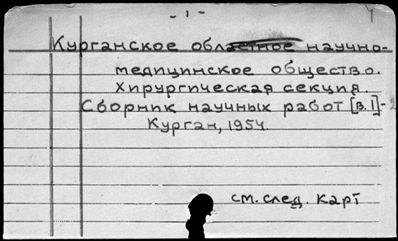 - 1 -
Курганское областное научно-
медицинское общество.
Хирургическая секция.
Сборник научных работ [в. I]-2
Курган, 1954.
см. след. карт